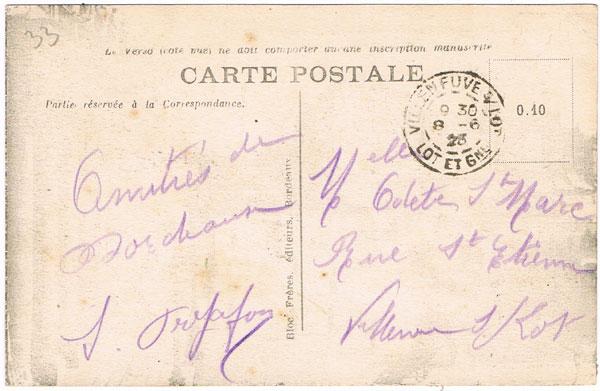 33
Le Verso (côté vue) ne doit comporter aucune inscription manuscrite
CARTE POSTALE
Partie réservée à la Correspondance.
VILLENEUVE S/ LOT
9 30
8 - 6
25
LOT ET GNE
0.10
Amitiés de
Bordeaux
Bloc Frères, éditeurs, Bordeaux
Melle
Odette St Marc
Rue St Etienne
Villeneuve s/ Lot